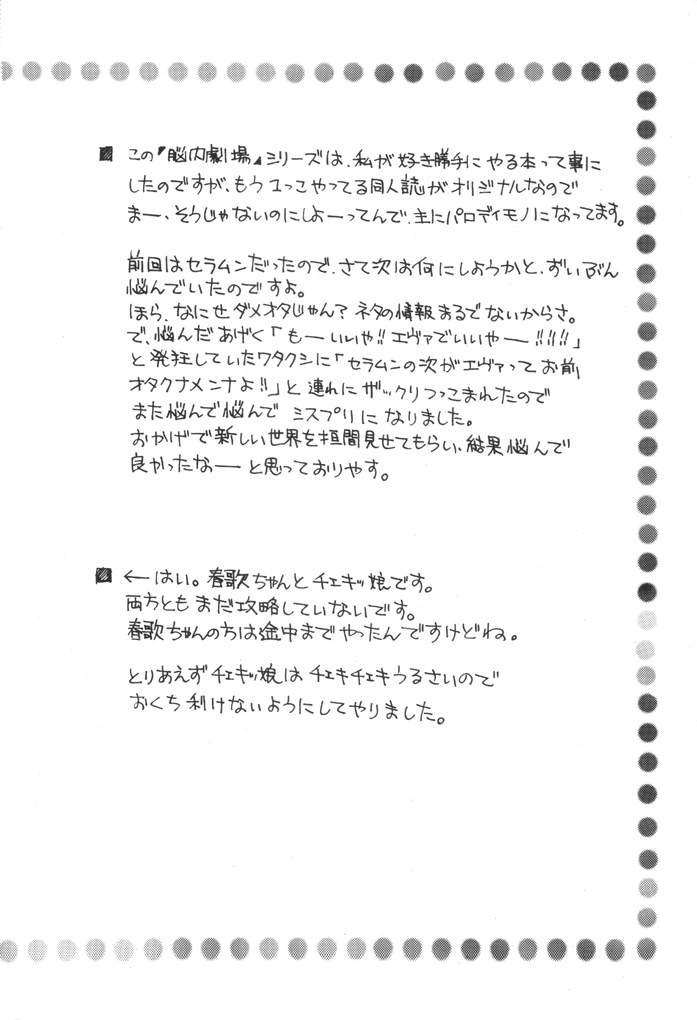 ■ この『脳内劇場』シリーズは、私が好き勝手にやる本って事に
したのですが、もう1つやってる同人誌がオリジナルなので
まー、そうじゃないのにしよーってんで、主にパロディモノになってます。
前回はセラムンだったので、さて次は何にしようかと、ずいぶん
悩んでいたのですよ。
ほら、なにせダメオタじゃん？ネタの情報まるでないからさ。
で、悩んだあげく「もーいいや!!エヴァでいいやー!!!!!」
と発狂していたワタクシに「セラムンの次がエヴァってお前
オタクナメンナよ!!」と連れにザックリつっこまれたので
また悩んで悩んで ミスプリになりました。
おかげで新しい世界を垣間見せてもらい、結果悩んで
良かったなーと思っておりやす。
■ ←はい。春歌ちゃんとチェキッ娘です。
両方ともまだ攻略していないです。
春歌ちゃんの方は途中までやったんですけどね。
とりあえずチェキッ娘はチェキチェキうるさいので
おくち利けないようにしてやりました。